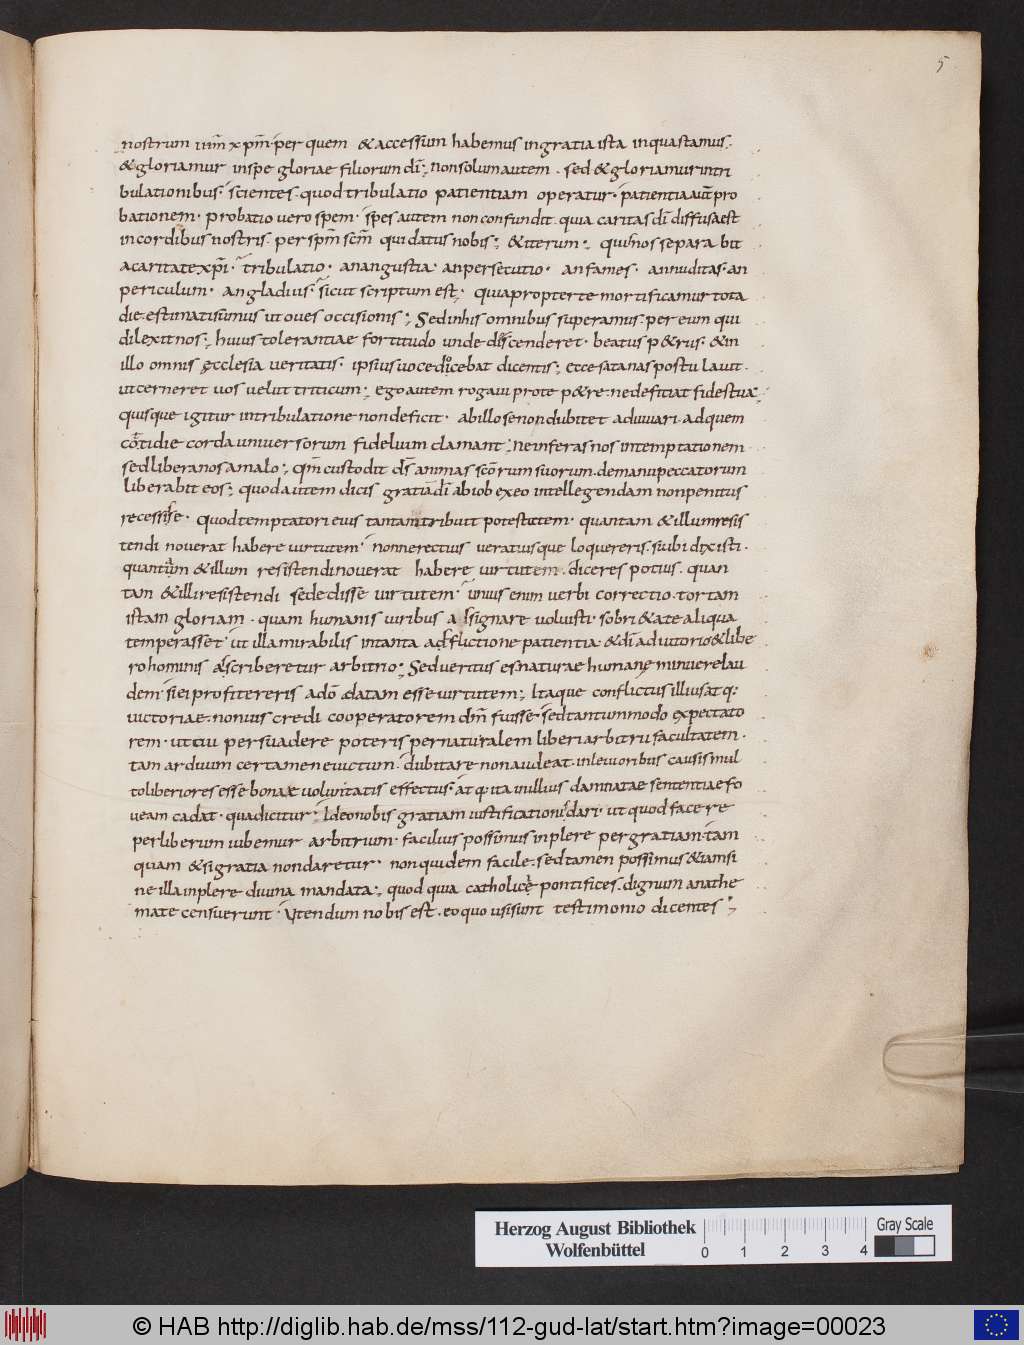 5
nostrum ihm̄ xpm̄· per quem & accessum habemus ingratia ista inquastamus·
&gloriamur inspe gloriae filiorum dī; nonsolum autem· sed &gloriamur intri
bulationibus· scientes· quod tribulatio patientiam operatur· patientia aut̄ pro
bationem· probatio vero spem· spes autem non confundit· quia caritas dī diffusa est
in cordibus nostris· per spm̄ scm̄ qui datus nobis; &iterum; quis nos separabit
acaritate xpī· tribulatio· an angustia· an persecutio· an fames· an nuditas· an
periculum· an gladius· sicut scriptum est; quia propter te mortificamur tota
die· estimati sumus ut oues occisionis; Sed in his omnibus superamus· per eum qui
dilexit nos; huius tolerantiae fortitudo unde discenderet· beatus p&rus· &in
illo omnis ęcclesia veritatis· ipsius uoce dicebat dicentis; ecce satanas postulauit·
ut cerneret uos velut triticum; ego autem rogaui pro te p&re· ne deficiat fides tua;
quisque igitur in tribulatione non deficit· ab illo se non dubitet adiuuari· ad quem
cotidie corda uniuersorum fidelium clamant; ne inferas nos in temptationem
sed libera nos a malo; qm̄ custodit dn̄s animas scōrum suorum· de manu peccatorum
liberabit eos; quod autem dicis gratiam dī ab iob ex eo intellegendam non penitus
recessisse· quod temptatori eius tantam tribuit potestatem· quantam &illum resis
tendi nouerat habere uirtutem· nonne rectius veratiusque loquereris· si ubi dixisti·
quantum &illum resistendi nouerat habere virtutem· diceres potius· quan
tam &illi resistendi se dedisse virtutem· unius enim verbi correctio· tortam
istam gloriam· quam humanis uiribus assignare uoluisti· sobri&ate aliqua
temperasset· ut illa mirabilis in tanta adflictione patientia· &dī adiutorio &libe
ro hominis ascriberetur arbitrio; Sed ueritus es naturae humanę minuere lau
dem· si ei profitereris a dō datam esse uirtutem; Itaque conflictus illius atq:
uictoriae· non uis credi cooperatorem dn̄m fuisse· sed tantummodo expectato
rem· ut cui persuadere poteris per naturalem liberi arbitrii facultatem·
tam arduum certamen euictum· dubitare non audeat· in leuioribus causis mul
to liberiores esse bonae uoluntatis effectus· atq· ita in illius damnatae sententiae fo
ueam cadat· qua dicitur; Ideo nobis gratiam iustificationis dari· ut quod facere
per liberum iubemur arbitrium· facilius possimus inplere per gratiam· tam
quam &si gratia non daretur· non quidem facile· sed tamen possimus &iam si
ne illa inplere diuina mandata; quod quia catholicę pontifices· dignum anathe
mate censuerunt· Utendum nobis est· eo quo usi sunt testimonio dicentes;
Herzog August Bibliothek
Wolfenbüttel
0 1 2 3 4
Gray Scale
© HAB http://diglib.hab.de/mss/112-gud-lat/start.htm?image=00023